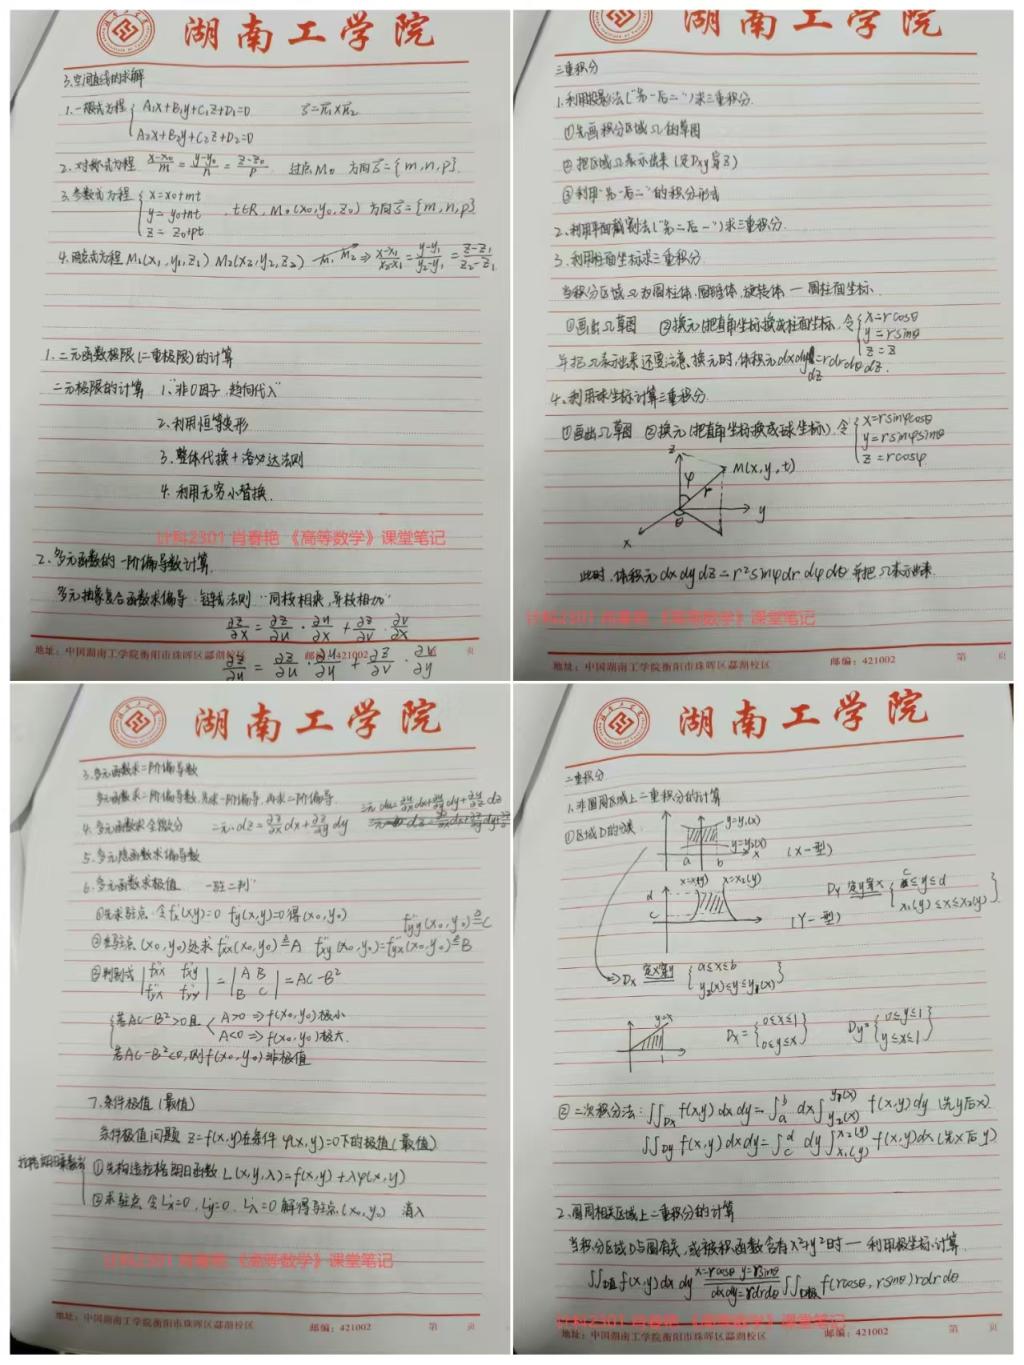 湖南工学院
3.空间直线的求解
1.一般式方程 { A₁x+B₁y+C₁z+D₁=0 s⃗=n⃗₁×n⃗₂
A₂x+B₂y+C₂z+D₂=0
2.对称式方程 (x-x₀)/m = (y-y₀)/n = (z-z₀)/p 过点M₀ 方向s⃗={m,n,p}.
3.参数式方程 { x=x₀+mt
y=y₀+nt , t∈R, M₀(x₀,y₀,z₀) 方向s⃗={m,n,p}
z=z₀+pt
4.两点式方程 M₁(x₁,y₁,z₁) M₂(x₂,y₂,z₂) M₁M₂ ⇒ (x-x₁)/(x₂-x₁) = (y-y₁)/(y₂-y₁) = (z-z₁)/(z₂-z₁)
1.二元函数极限(二重极限)的计算
二元极限的计算 1."非0因子,趋向代入"
2.利用恒等变形
3.整体代换+洛必达法则
4.利用无穷小替换.
计科2301 肖春艳 《高等数学》课堂笔记
2.多元函数的一阶偏导数计算.
多元抽象复合函数求偏导.链式法则 "同枝相乘,异枝相加"
∂z/∂x = ∂z/∂u · ∂u/∂x + ∂z/∂v · ∂v/∂x
地址：中国湖南工学院衡阳市珠晖区酃湖校区 邮编：421002 页
∂z/∂y = ∂z/∂u · ∂u/∂y + ∂z/∂v · ∂v/∂y
湖南工学院
三重积分
1.利用投影法("先一后二")求三重积分.
①先画积分区域Ω的草图
②把区域Ω表示出来(定Dxy穿z)
③利用"先一后二"的积分形式
2.利用平面截割法("先二后一")求三重积分.
3.利用柱面坐标求三重积分.
当积分区域Ω为圆柱体,圆锥体,旋转体 — 圆柱面坐标.
①画出Ω草图 ②换元(把直角坐标换成柱面坐标,令 { x=rcosθ
y=rsinθ
z=z
并把Ω表示出来还要注意,换元时,体积元dxdydz=rdrdθdz.
4.利用球坐标计算三重积分.
①画出Ω草图 ②换元(把直角坐标换成球坐标),令 { x=rsinφcosθ
y=rsinφsinθ
z=rcosφ
z
M(x,y,t)
φ r
θ y
x
此时,体积元dxdydz=r²sinφdrdφdθ并把Ω表示出来.
计科2301 肖春艳 《高等数学》课堂笔记
地址：中国湖南工学院衡阳市珠晖区酃湖校区 邮编：421002 第 页
湖南工学院
3.多元函数求二阶偏导数
多元函数求二阶偏导数,先求一阶偏导,再求二阶偏导.
三元 du=∂u/∂x dx+∂u/∂y dy+∂u/∂z dz
4.多元函数求全微分 二元. dz=∂z/∂x dx+∂z/∂y dy
5.多元隐函数求偏导数
6.多元函数求极值 "一驻二判"
①先求驻点.令fx'(x,y)=0 fy'(x,y)=0得(x₀,y₀)
②在驻点(x₀,y₀)处求f''xx(x₀,y₀)≜A f''xy(x₀,y₀)=f''yx(x₀,y₀)≜B f''yy(x₀,y₀)≜C
③判别式 |f''xx f''xy; f''yx f''yy| = |A B; B C| = AC-B²
{ 若AC-B²>0且 < A>0 ⇒ f(x₀,y₀)极小
A<0 ⇒ f(x₀,y₀)极大.
若AC-B²<0,则f(x₀,y₀)非极值
7.条件极值(最值)
条件极值问题 z=f(x,y)在条件φ(x,y)=0下的极值(最值)
拉格朗日乘数法 ①先构造拉格朗日函数L(x,y,λ)=f(x,y)+λφ(x,y)
②求驻点.令L'x=0,L'y=0,L'λ=0解得驻点(x₀,y₀)
计科2301 肖春艳 《高等数学》课堂笔记
地址：中国湖南工学院衡阳市珠晖区酃湖校区 邮编：421002 第 页
湖南工学院
二重积分
1.非圆周区域上二重积分的计算
①区域D的分类
y=y₁(x)
y=y₂(x)
a b x (X-型)
x=x₁(y) x=x₂(y)
d
c
(Y-型)
Dy 定y穿x { c≤y≤d
x₁(y)≤x≤x₂(y) }
Dx 定x穿y { a≤x≤b
y₂(x)≤y≤y₁(x) }
y=x
1
Dx={ 0≤x≤1
0≤y≤x } Dy={ 0≤y≤1
y≤x≤1 }
②二次积分法:∬Dx f(x,y)dxdy=∫ₐᵇdx∫_{y₂(x)}^{y₁(x)} f(x,y)dy (先y后x).
∬Dy f(x,y)dxdy=∫_c^d dy∫_{x₁(y)}^{x₂(y)} f(x,y)dx(先x后y)
2.圆周相关区域上二重积分的计算
当积分区域D与圆有关,或被积函数含有x²+y²时 — 利用极坐标计算.
∬D直 f(x,y)dxdy x=rcosθ y=rsinθ dxdy=rdrdθ ∬D极 f(rcosθ,rsinθ)rdrdθ
计科2301 肖春艳 《高等数学》课堂笔记
地址：中国湖南工学院衡阳市珠晖区酃湖校区 邮编：421002 第 页